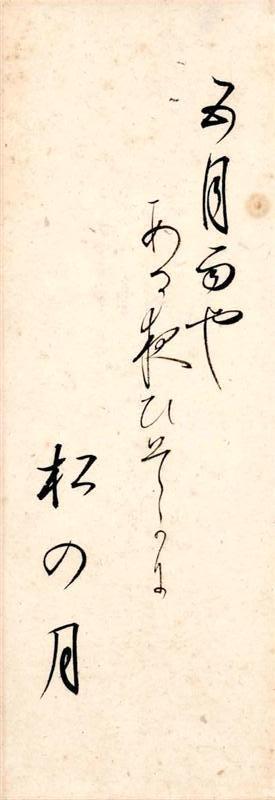 五月雨や
ある夜ひそかに
松の月